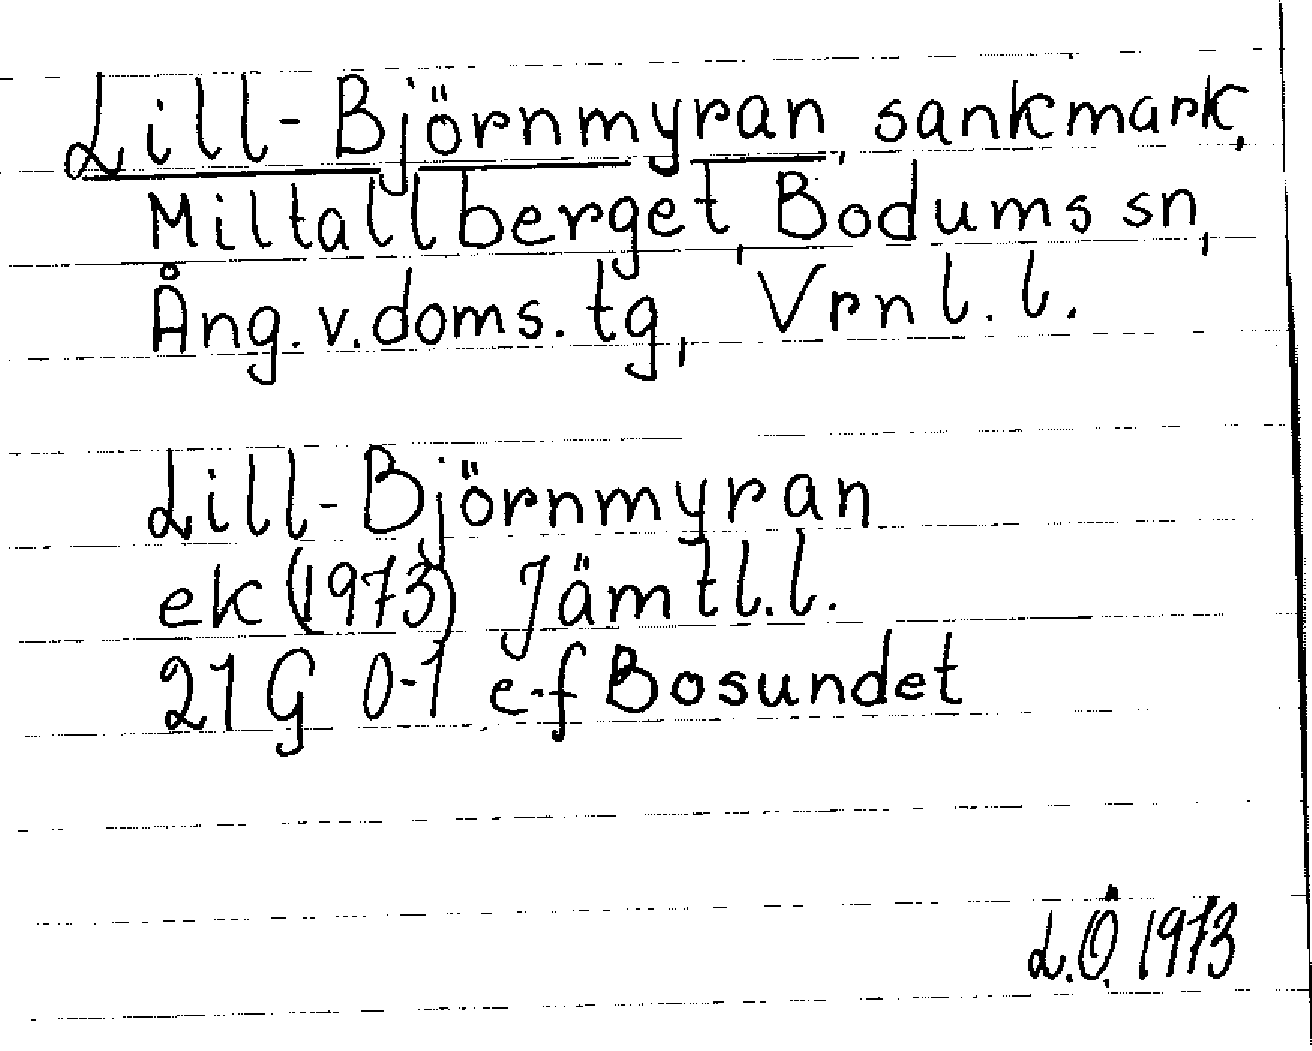 Lill-Björnmyran, sankmark,
Miltallberget, Bodums sn,
Ång. v. doms. tg, Vrnl. l.
Lill-Björnmyran
ek (1973) Jämtl. l.
21G 0-1 e-f Bosundet
L.Ö. 1973